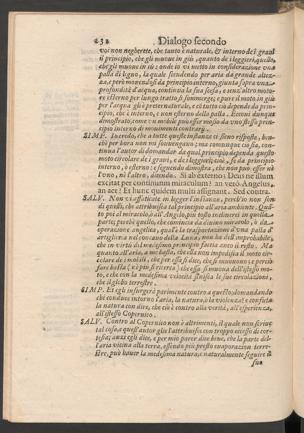 232 Dialogo secondo
voi non negherete, che tanto è naturale, & interno de i graui
il principio, che gli muoue in giù, quanto de i leggieri, quello,
che gli muoue in sù: onde io vi metto in considerazione vna
palla di legno, la quale scendendo per aria da grande altez-
za, e però mouendosi da principio interno, giunta sopra vna
profondità d'acqua, continua la sua scesa, e senz'altro moto-
re esterno per lungo tratto si sommerge; e pure il moto in giù
per l'acqua gli è preternaturale, e con tutto ciò depende da prin-
cipio, che è interno, e non esterno della palla. Eccoui dunque
dimostrato, come vn mobile può esser mosso da vno stesso prin-
cipio interno di mouimenti contrarij.
SIMP. Io credo, che a tutte queste instanze ci sieno risposte, ben-
chè per hora non mi souuengano; ma comunque ciò sia, con-
tinua l'autor di domandar da qual principio dependa questo
moto circolare de i graui, e de i leggieri, cioè, se da principio
interno, ò esterno: e seguendo dimostra, che non può esser nè
l'vno, nè l'altro, dicendo. Si ab externo; Deus ne illum
excitat per continuum miraculum? an verò Angelus,
an aer? Et hunc quidem multi assignant. Sed contra.
SALV. Non vi affaticate in legger l'instanze, perch'io non son
di quelli, che attribuisca tal principio all'aria ambiente. Quã-
to poi al miracolo, ò all'Angelo, più tosto inclinerei in questa
parte; perchè quello, che comincia da diuino miracolo, ò da
operazione angelica, qual'è la trasportazione d'vna palla d'
artiglieria nel concauo della Luna, non hà dell'improbabile,
che in virtù del medesimo principio faccia anco il resto. Ma
quanto all'aria, a me basta, che ella non impedisca il moto cir-
colare de i mobili, che per essa si dice, che si muouono: e per ciò
fare basta (nè più si ricerca) che essa si muoua dell'istesso mo-
to, e che con la medesima velocità finisca le sue circolazioni,
che il globo terrestre.
SIMP. Et egli insurgerà parimente contro a questo; domandando
chi conduce intorno l'aria, la natura, ò la violenza? e confuta
la natura con dire, che ciò è contro alla verità, all'esperienza,
all'istesso Copernico.
SALV. Contro al Copernico non è altrimenti, il quale non scriue
tal cosa; e quest'autor glie l'attribuisce con troppo eccesso di cor-
tesia; anzi egli dice, e per mio parere dice bene, che la parte del-
l'aria vicina alla terra, essendo più presto euaporazion terre-
stre, può hauer la medesima natura, e naturalmente seguire il
suo